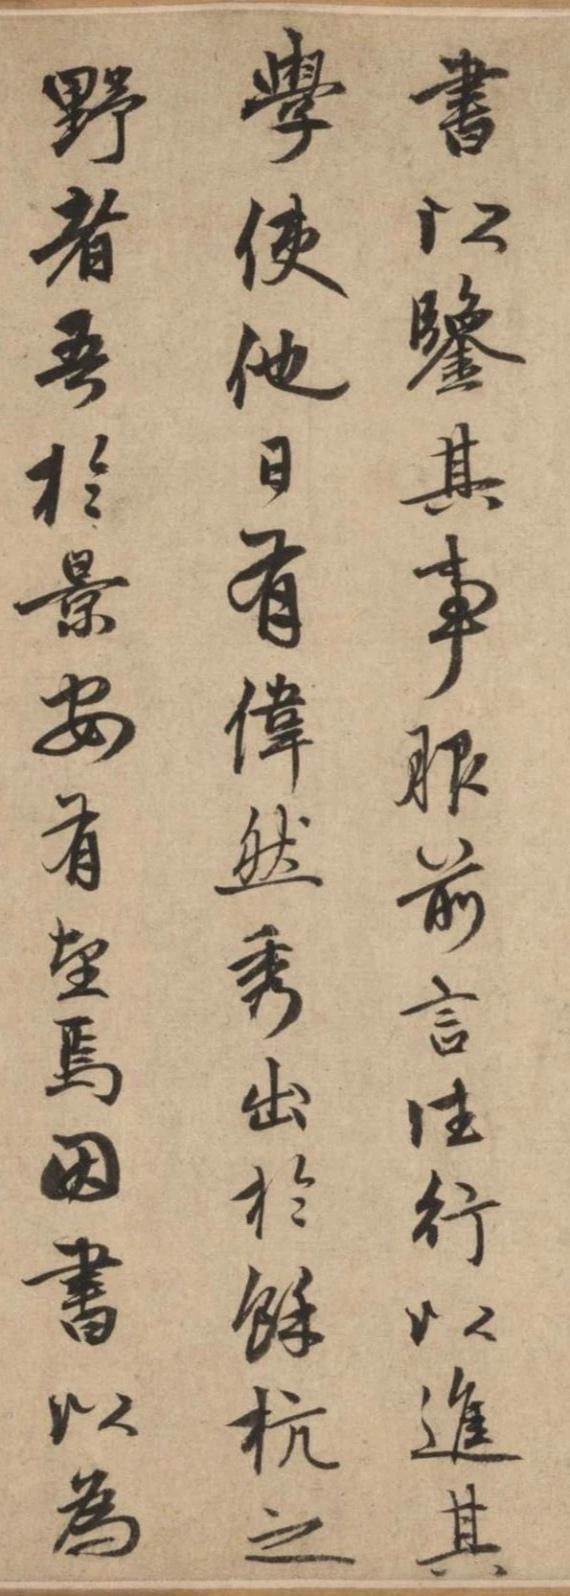 書以鑒其事服前言往行以進其
學使他日有偉然秀出於餘杭之
野者吾於景安有望焉因書以為